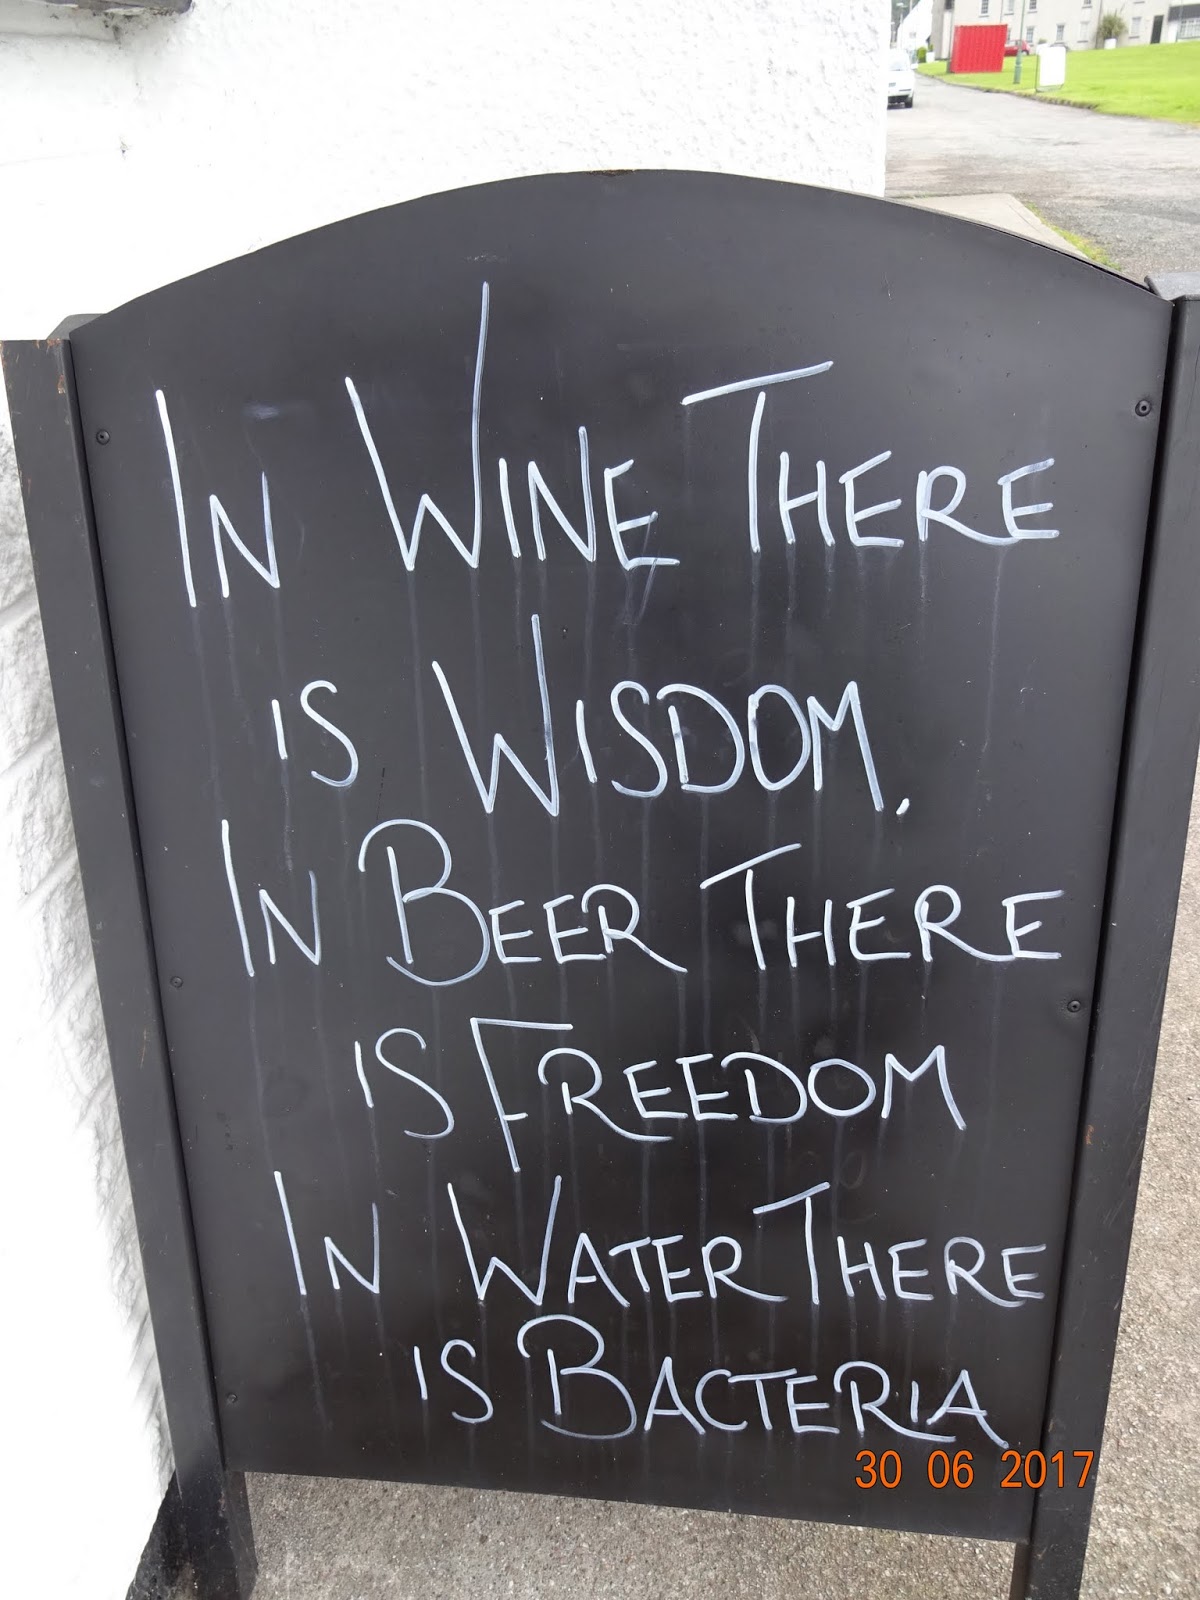 In Wine There
is Wisdom.
In Beer There
is Freedom
In Water There
is Bacteria
30 06 2017